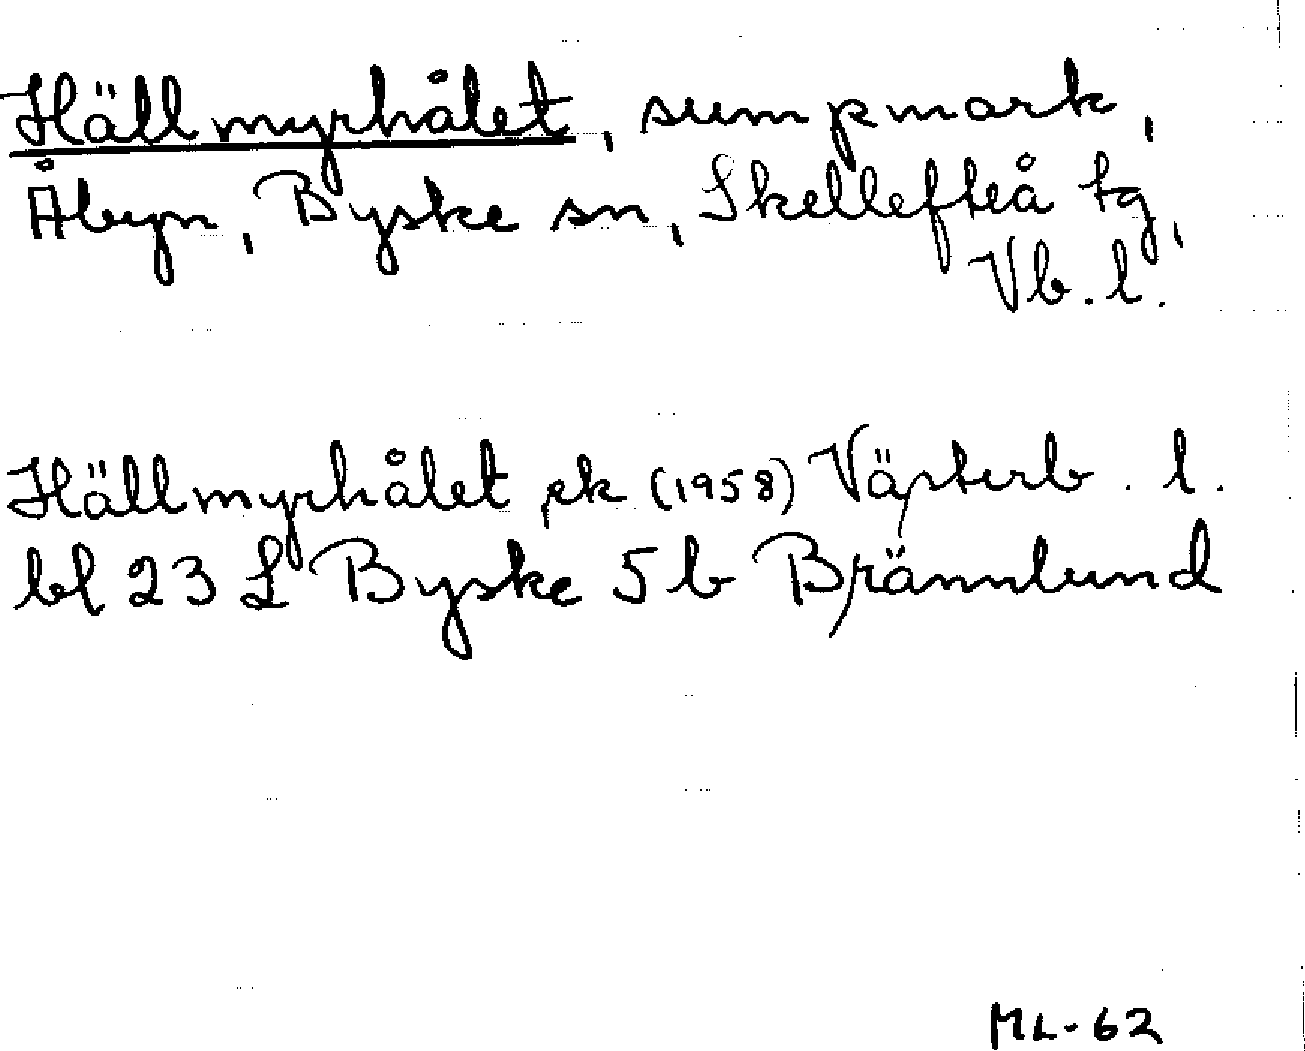 Hällmyrhålet, sumpmark,
Åbyn, Byske sn, Skellefteå tg,
Vb. l.
Hällmyrhålet ek (1958) Västerb. l.
bl 23 L Byske 5 b Brännlund
ML-62